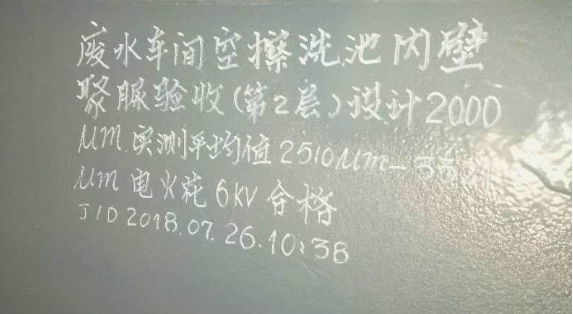 废水车间空擦洗池内壁
聚脲验收(第2层)设计2000
μm.实测平均值2510μm-
μm 电火花6KV合格
JID 2018.07.26.10:38